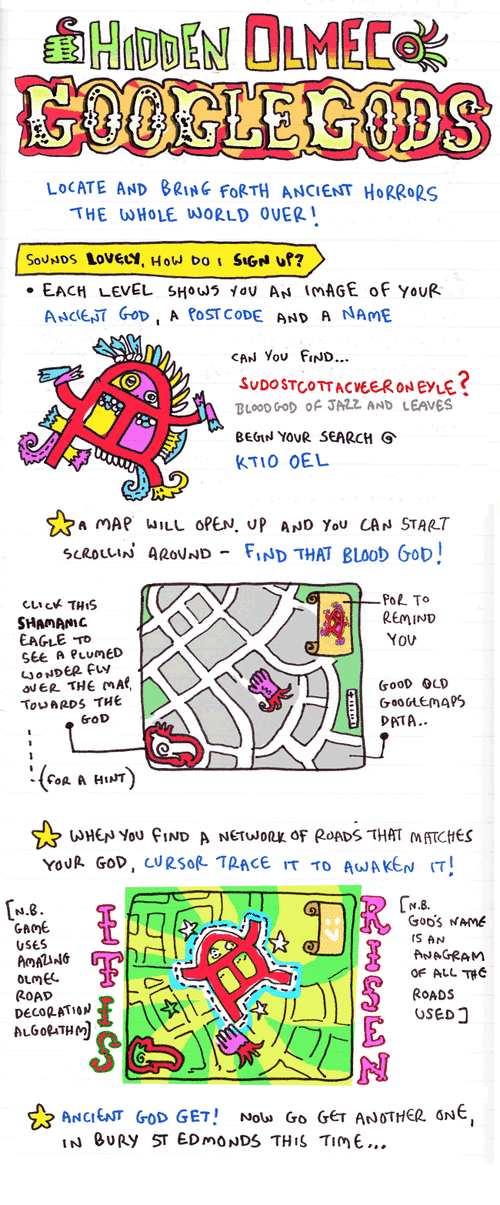 HIDDEN OLMEC
GOOGLE GODS
LOCATE AND BRING FORTH ANCIENT HORRORS
THE WHOLE WORLD OVER!
SOUNDS LOVELY, HOW DO I SIGN UP?
• EACH LEVEL SHOWS YOU AN IMAGE OF YOUR
ANCIENT GOD, A POSTCODE AND A NAME
CAN YOU FIND...
SUDOSTCOTTACVEERONEYLE?
BLOOD GOD OF JAZZ AND LEAVES
BEGIN YOUR SEARCH @
KT10 OEL
A MAP WILL OPEN UP AND YOU CAN START
SCROLLIN' AROUND - FIND THAT BLOOD GOD!
CLICK THIS
SHAMANIC
EAGLE TO
SEE A PLUMED
WONDER FLY
OVER THE MAP,
TOWARDS THE
GOD
(FOR A HINT)
FOR TO
REMIND
YOU
GOOD OLD
GOOGLEMAPS
DATA..
WHEN YOU FIND A NETWORK OF ROADS THAT MATCHES
YOUR GOD, CURSOR TRACE IT TO AWAKEN IT!
[N.B.
GAME
USES
AMAZING
OLMEC
ROAD
DECORATION
ALGORITHM]
IT IS
RISEN
[N.B.
GOD'S NAME
IS AN
ANAGRAM
OF ALL THE
ROADS
USED]
ANCIENT GOD GET! NOW GO GET ANOTHER ONE,
IN BURY ST EDMONDS THIS TIME...